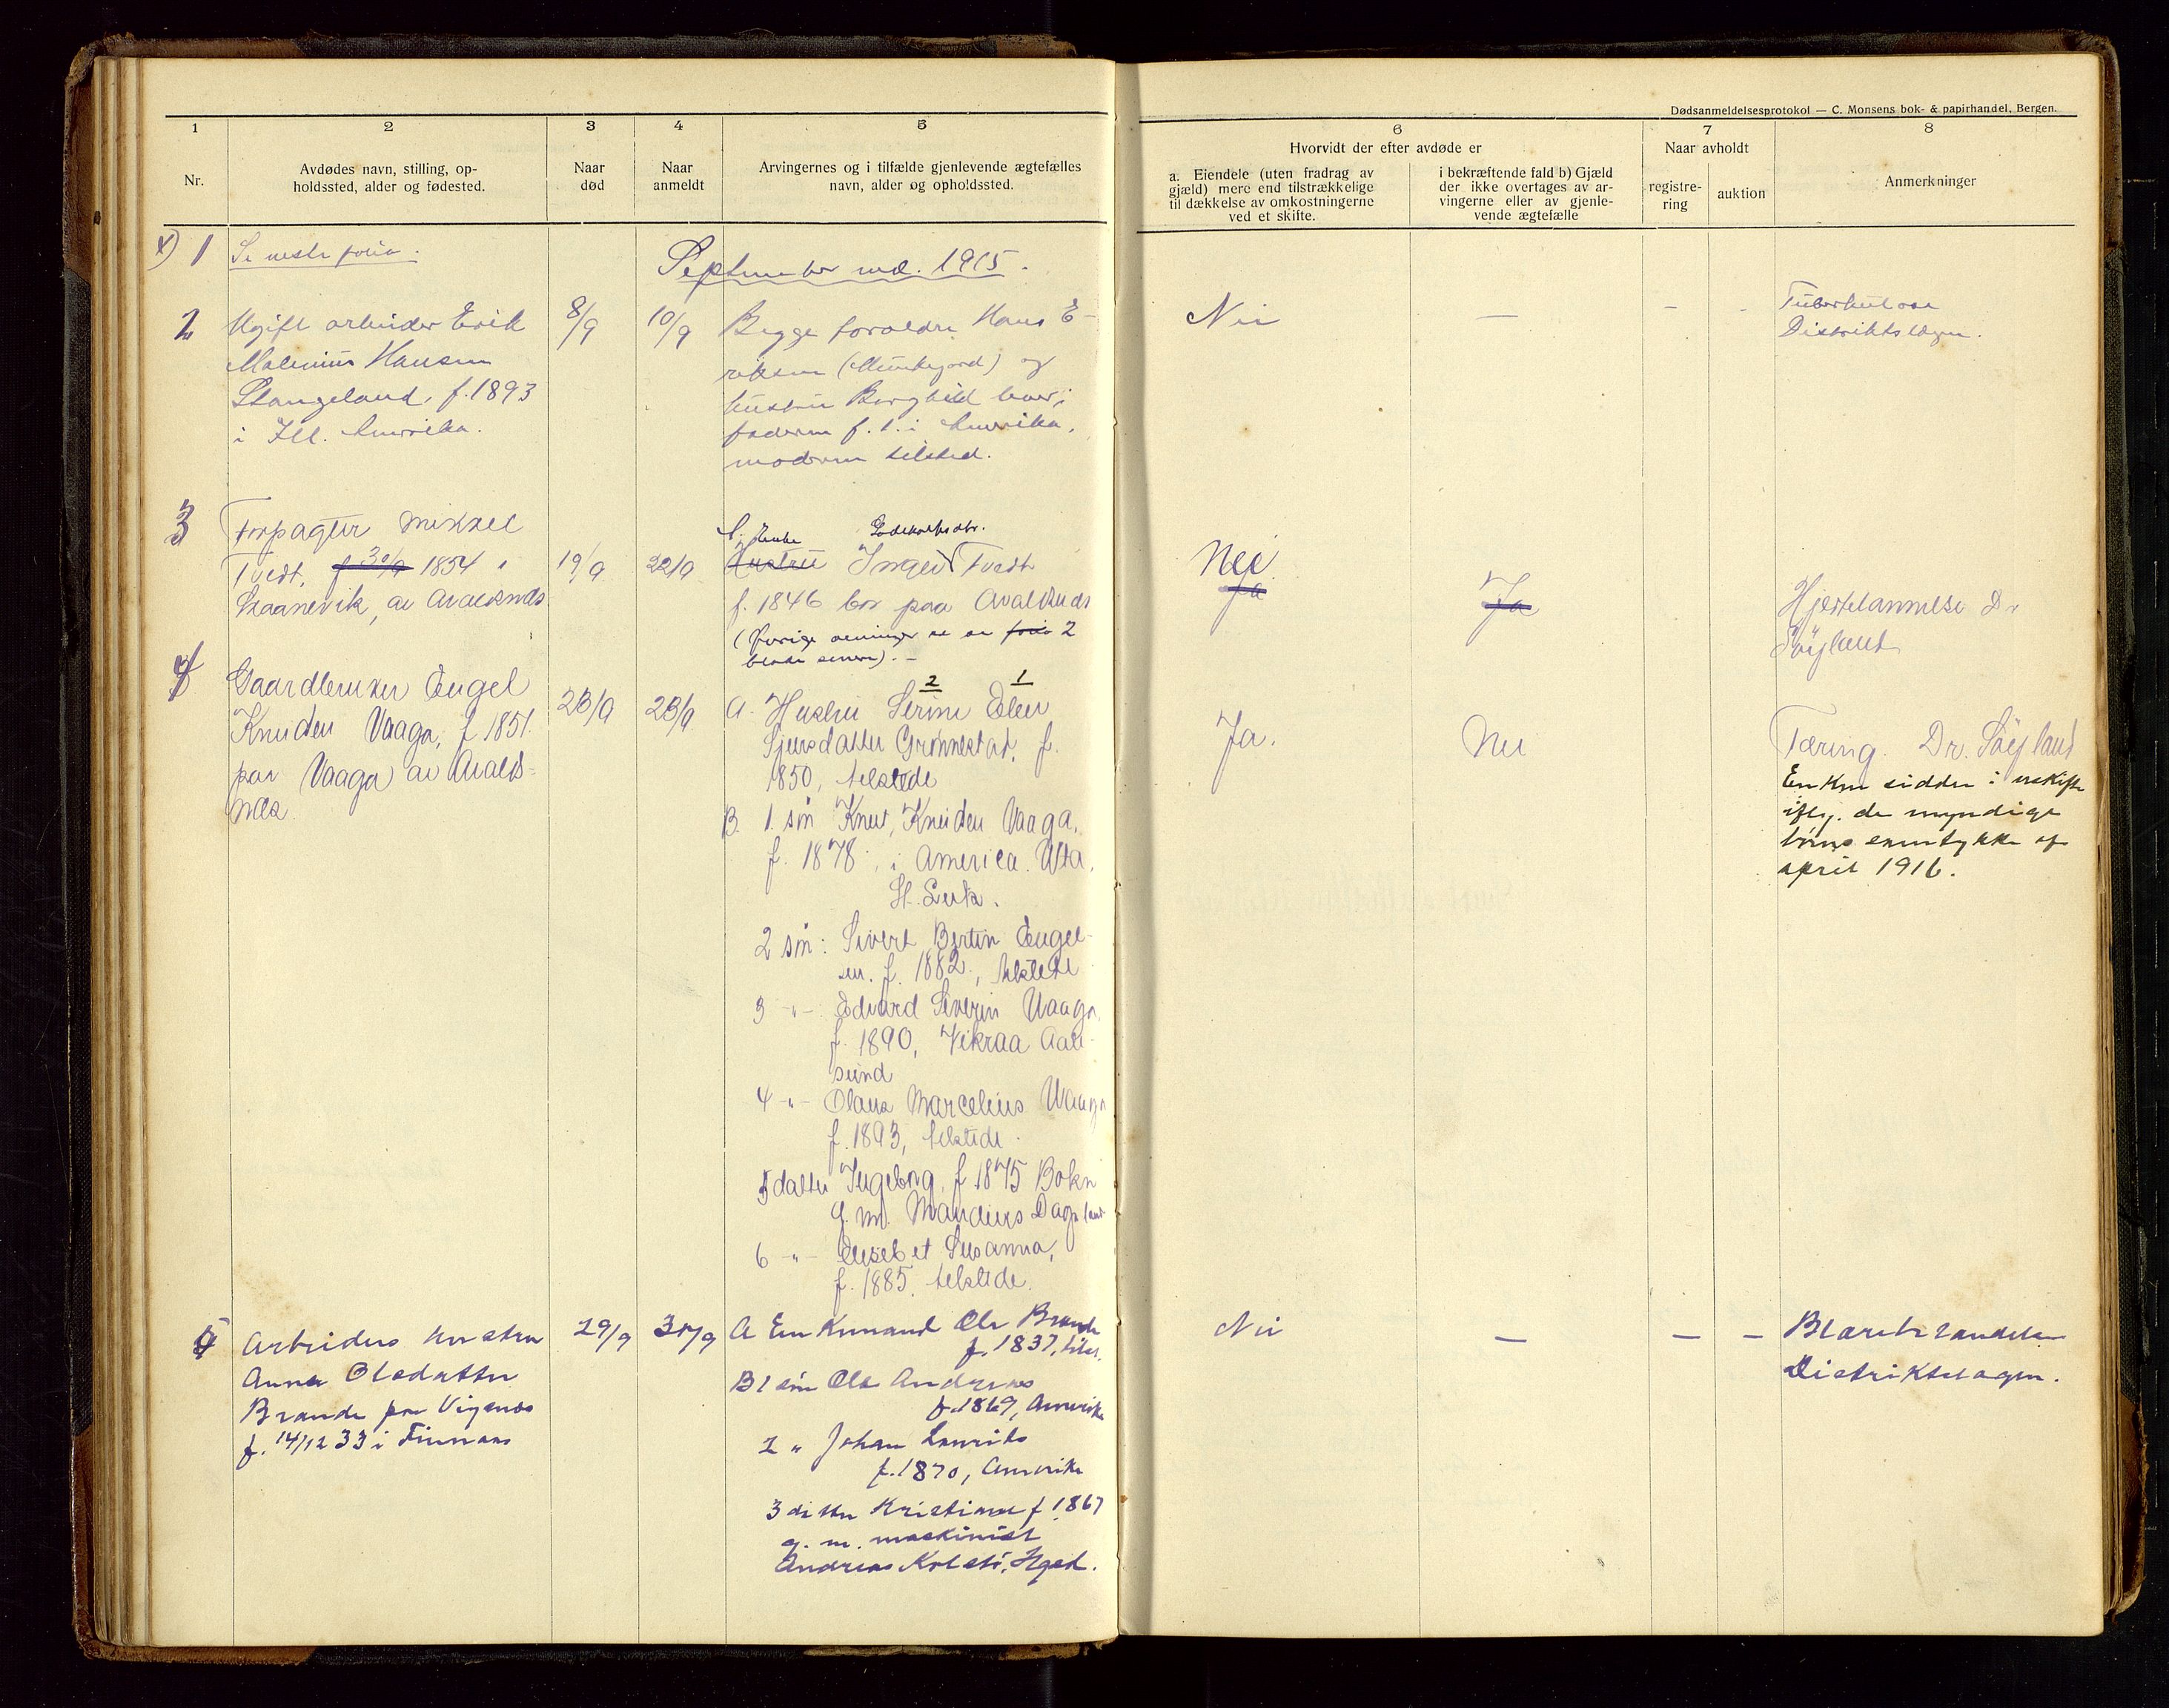 Dødsanmeldelsesprotokol — C. Monsens bok- & papirhandel, Bergen.
1 2 3 4 5 6 7 8
Nr.
Avdødes navn, stilling, op-
holdssted, alder og fødested.
Naar
død
Naar
anmeldt
Arvingernes og i tilfælde gjenlevende ægtefælles
navn, alder og opholdssted.
Hvorvidt der efter avdøde er
a. Eiendele (uten fradrag av
gjæld) mere end tilstrækkelige
til dækkelse av omkostningerne
ved et skifte.
i bekræftende fald b) Gjæld
der ikke overtages av ar-
vingerne eller av gjenle-
vende ægtefælle
Naar avholdt
registre-
ring
auktion
Anmerkninger
x) 1 Se neste folio.
September md. 1915.
2
Ugift arbeider Erik
Malenius Hansen
Stangeland, f. 1893
i Ill. Amerika.
8/9
10/9
Begge forældre Hans E-
riksen (Munkejord) og
hustru Borghild lever;
faderen f. t. i Amerika,
moderen tilsted.
Nei
—
-
-
Tuberkulose
Distriktslægen.
3
Forpagter Mikkel
Tvedt, f 30/9 1854 i
Skaanevik, av Avaldsnes
19/9
22/9
S. Enke
Hustru Inger Tvedt
f. 1846 bor paa Avaldsnes
(Øvrige arvinger se folio 2
blade senere). -
Nei
Ja
Ja
Hjertelammelse Dr
Söyland
4
Gaardbruker Engel
Knudsen Vaaga, f 1851
paa Vaaga av Avalds-
nes.
23/9
28/9
2 1
A. Hustru Serine Elen
Sjursdatter Grönnestad, f.
1850, tilstede
B. 1. sön Knut Knudsen Vaaga,
f. 1878, i America. Uta.
2 sön: Sivert Bertin Engel-
sen. f. 1882, tilstede
3 -"- Edvard Severin Vaaga
f. 1890, Vikraa Aale-
sund
4 -"- Olaus Marcelius Vaaga
f. 1893, tilstede.
5 datter Ingeborg, f 1875 Bokn
g. m. Mandius Dagsland
6 -"- Elisebet Susanna,
f. 1885, tilstede.
Ja.
Nei
Tæring. Dr. Söyland
Enken sidder i uskifte
iflg. de myndige
börns samtykke af
april 1916.
5
Arbeiders hustru
Anna Olsdatter
Brande paa Vigsnes
f. 14/12 33 i Finnaas
29/9
30/9
A Enkemand Ole Brande
f. 1837, tilst.
B 1 sön Ole Andreas
f. 1869, Amerika
2 " Johan Laurits
f. 1870, Amerika
3 datter Kristiane f 1867
g. m. maskinist
Andreas Kolstö, Hgsd.
Nei
—
—
—
Blærebetændelse
Distriktslægen.